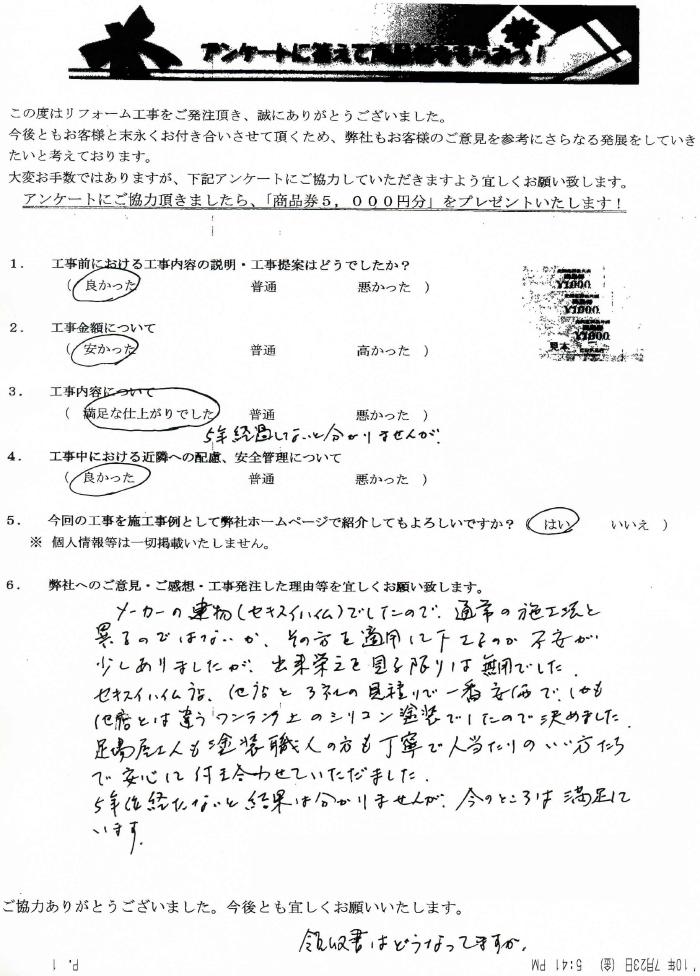 アンケートに答えて商品券をもらおう！
この度はリフォーム工事をご発注頂き、誠にありがとうございました。
今後ともお客様と末永くお付き合いさせて頂くため、弊社もお客様のご意見を参考にさらなる発展をしていき
たいと考えております。
大変お手数ではありますが、下記アンケートにご協力していただきますよう宜しくお願い致します。
アンケートにご協力頂きましたら、「商品券５，０００円分」をプレゼントいたします！
１．　工事前における工事内容の説明・工事提案はどうでしたか？
（　良かった　普通　悪かった　）
¥1,000
¥1,000
¥1,000
見本
２．　工事金額について
（　安かった　普通　高かった　）
３．　工事内容について
（　満足な仕上がりでした　普通　悪かった　）
5年経過しないと分かりませんが、
４．　工事中における近隣への配慮、安全管理について
（　良かった　普通　悪かった　）
５．　今回の工事を施工事例として弊社ホームページで紹介してもよろしいですか？（　はい　いいえ　）
※ 個人情報等は一切掲載いたしません。
６．　弊社へのご意見・ご感想・工事発注した理由等を宜しくお願い致します。
メーカーの建物(セキスイハイム)でしたので、通常の施工法と
異るのではないか、その方を適用に下さるのか不安が
少しありましたが、出来栄えを見る限りは無用でした。
セキスイハイム店、他店と3社の見積りで一番安価で、しかも
他店とは違うワンランク上のシリコン塗装でしたので決めました。
足場屋さんも塗装職人の方も丁寧で人当たりのいい方たち
で安心に付き合わせていただました。
5年後経たないと結果は分かりませんが、今のところは満足して
います。
ご協力ありがとうございました。今後とも宜しくお願いいたします。
領収書はどうなってますか。
P. 1
'10年 7月23日(金) 5:41 PM